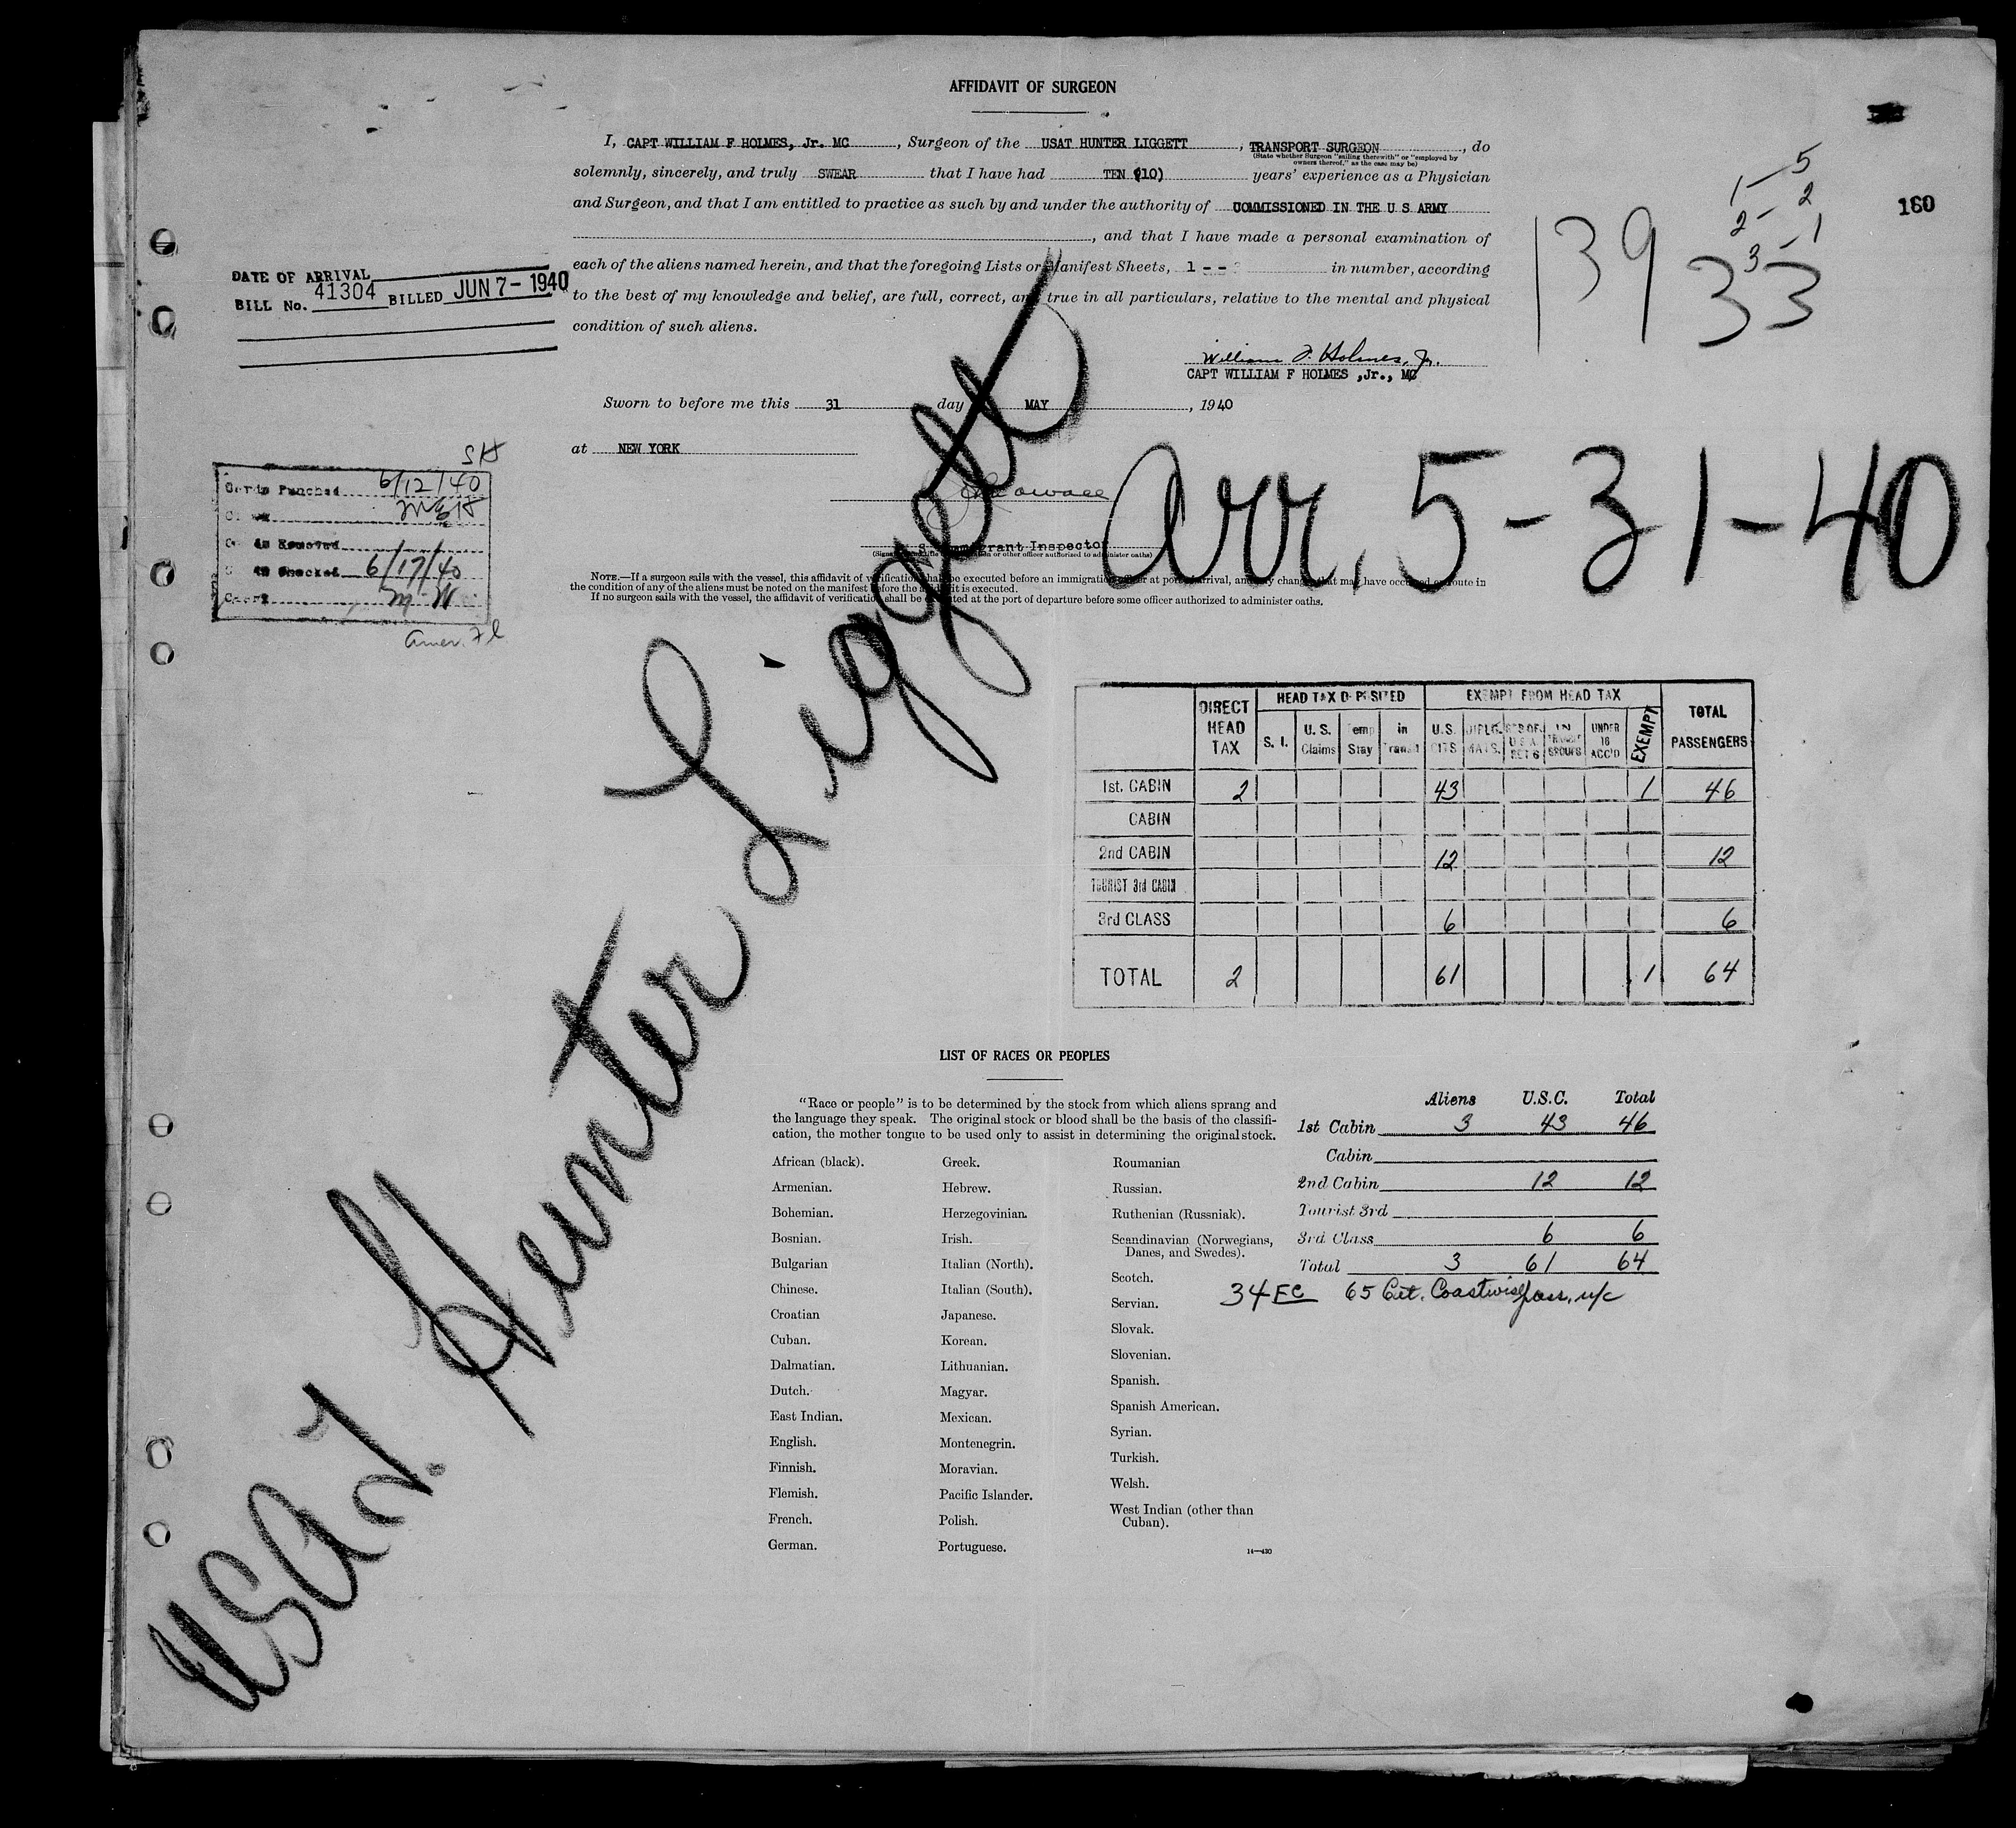 AFFIDAVIT OF SURGEON
160
I, CAPT WILLIAM F HOLMES, Jr. MC, Surgeon of the USAT HUNTER LIGGETT, TRANSPORT SURGEON, do
(State whether Surgeon "sailing therewith" or "employed by
owners thereof," as the case may be)
solemnly, sincerely, and truly SWEAR that I have had TEN (10) years' experience as a Physician
and Surgeon, and that I am entitled to practice as such by and under the authority of COMMISSIONED IN THE U S ARMY
, and that I have made a personal examination of
each of the aliens named herein, and that the foregoing Lists or Manifest Sheets, 1 - - in number, according
to the best of my knowledge and belief, are full, correct, and true in all particulars, relative to the mental and physical
condition of such aliens.
1-5
2-2
3-1
139 33
DATE OF ARRIVAL
BILL No. 41304 BILLED JUN 7-1940
William F. Holmes, Jr.
CAPT WILLIAM F HOLMES ,Jr., MC
Sworn to before me this 31 day MAY, 1940
at NEW YORK
Immigrant Inspector
arr. 5-31-40
SH
Cards Punched 6/12/40
MEH
Removed
Checked 6/17/40
Amer. Fl
NOTE.—If a surgeon sails with the vessel, this affidavit of verification shall be executed before an immigration officer at port of arrival, and any change that may have occurred en route in
the condition of any of the aliens must be noted on the manifest before the affidavit is executed.
If no surgeon sails with the vessel, the affidavit of verification shall be executed at the port of departure before some officer authorized to administer oaths.
USAT. Hunter Liggett
DIRECT HEAD TAX
HEAD TAX DEPOSITED
EXEMPT FROM HEAD TAX
TOTAL PASSENGERS
S. I. U. S. Claims Temp Stay in Transit U.S. CITS DIPLO-MATS. UNDER 16 ACC'D EXEMPT
1st. CABIN 2 43 1 46
CABIN
2nd CABIN 12 12
TOURIST 3rd CABIN
3rd CLASS 6 6
TOTAL 2 61 1 64
LIST OF RACES OR PEOPLES
"Race or people" is to be determined by the stock from which aliens sprang and
the language they speak. The original stock or blood shall be the basis of the classifi-
cation, the mother tongue to be used only to assist in determining the original stock.
African (black).
Armenian.
Bohemian.
Bosnian.
Bulgarian
Chinese.
Croatian
Cuban.
Dalmatian.
Dutch.
East Indian.
English.
Finnish.
Flemish.
French.
German.
Greek.
Hebrew.
Herzegovinian.
Irish.
Italian (North).
Italian (South).
Japanese.
Korean.
Lithuanian.
Magyar.
Mexican.
Montenegrin.
Moravian.
Pacific Islander.
Polish.
Portuguese.
Roumanian
Russian.
Ruthenian (Russniak).
Scandinavian (Norwegians,
Danes, and Swedes).
Scotch.
Servian.
Slovak.
Slovenian.
Spanish.
Spanish American.
Syrian.
Turkish.
Welsh.
West Indian (other than
Cuban).
14—430
Aliens U.S.C. Total
1st Cabin 3 43 46
Cabin
2nd Cabin 12 12
Tourist 3rd
3rd Class 6 6
Total 3 61 64
34 FC 65 Cit. Coastwise pass. n/c